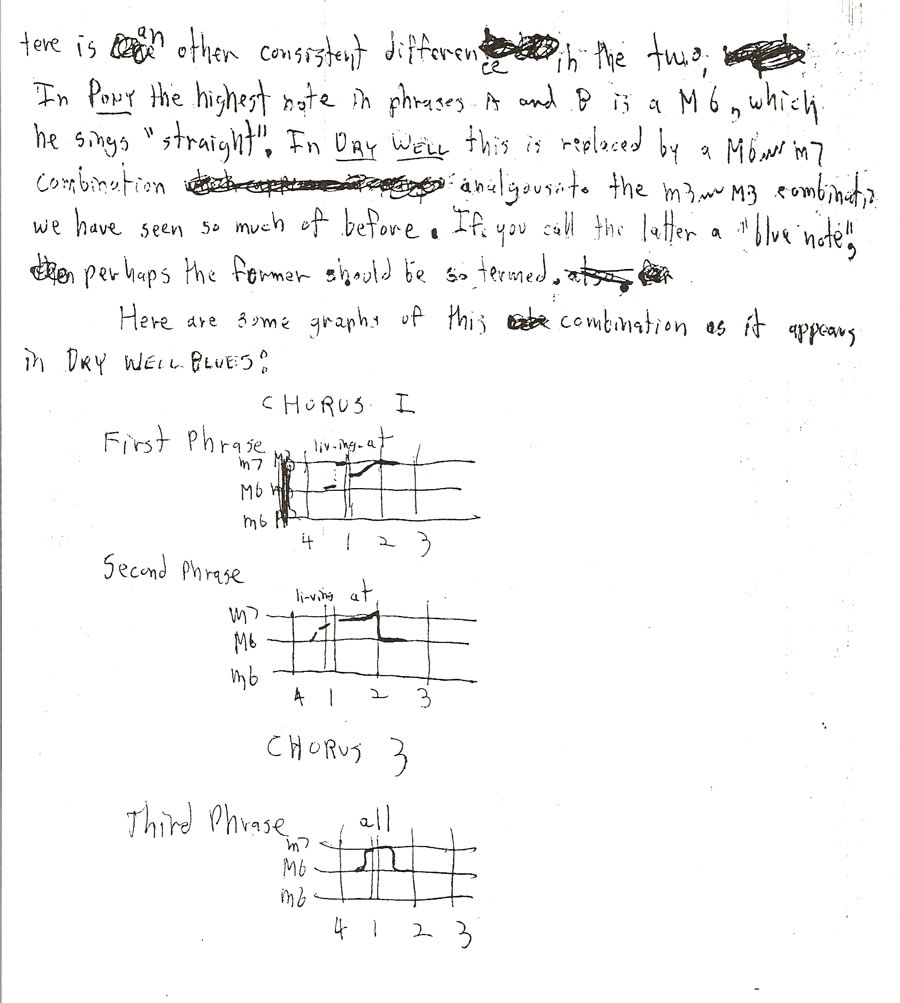 tere is an other consistent difference in the two,
In PONY the highest note in phrases A and B is a M6, which
he sings "straight". In DRY WELL this is replaced by a M6~m7
combination analgous to the m3~M3 combinatin
we have seen so much of before. If you call the latter a "blue note",
then perhaps the former should be so termed.
Here are some graphs of this combination as it appears
in DRY WELL BLUES:
CHORUS I
First Phrase
liv-ing-at
m7
M6
m6
4 1 2 3
Second Phrase
li-ving at
m7
M6
m6
4 1 2 3
CHORUS 3
Third Phrase
all
m7
M6
m6
4 1 2 3